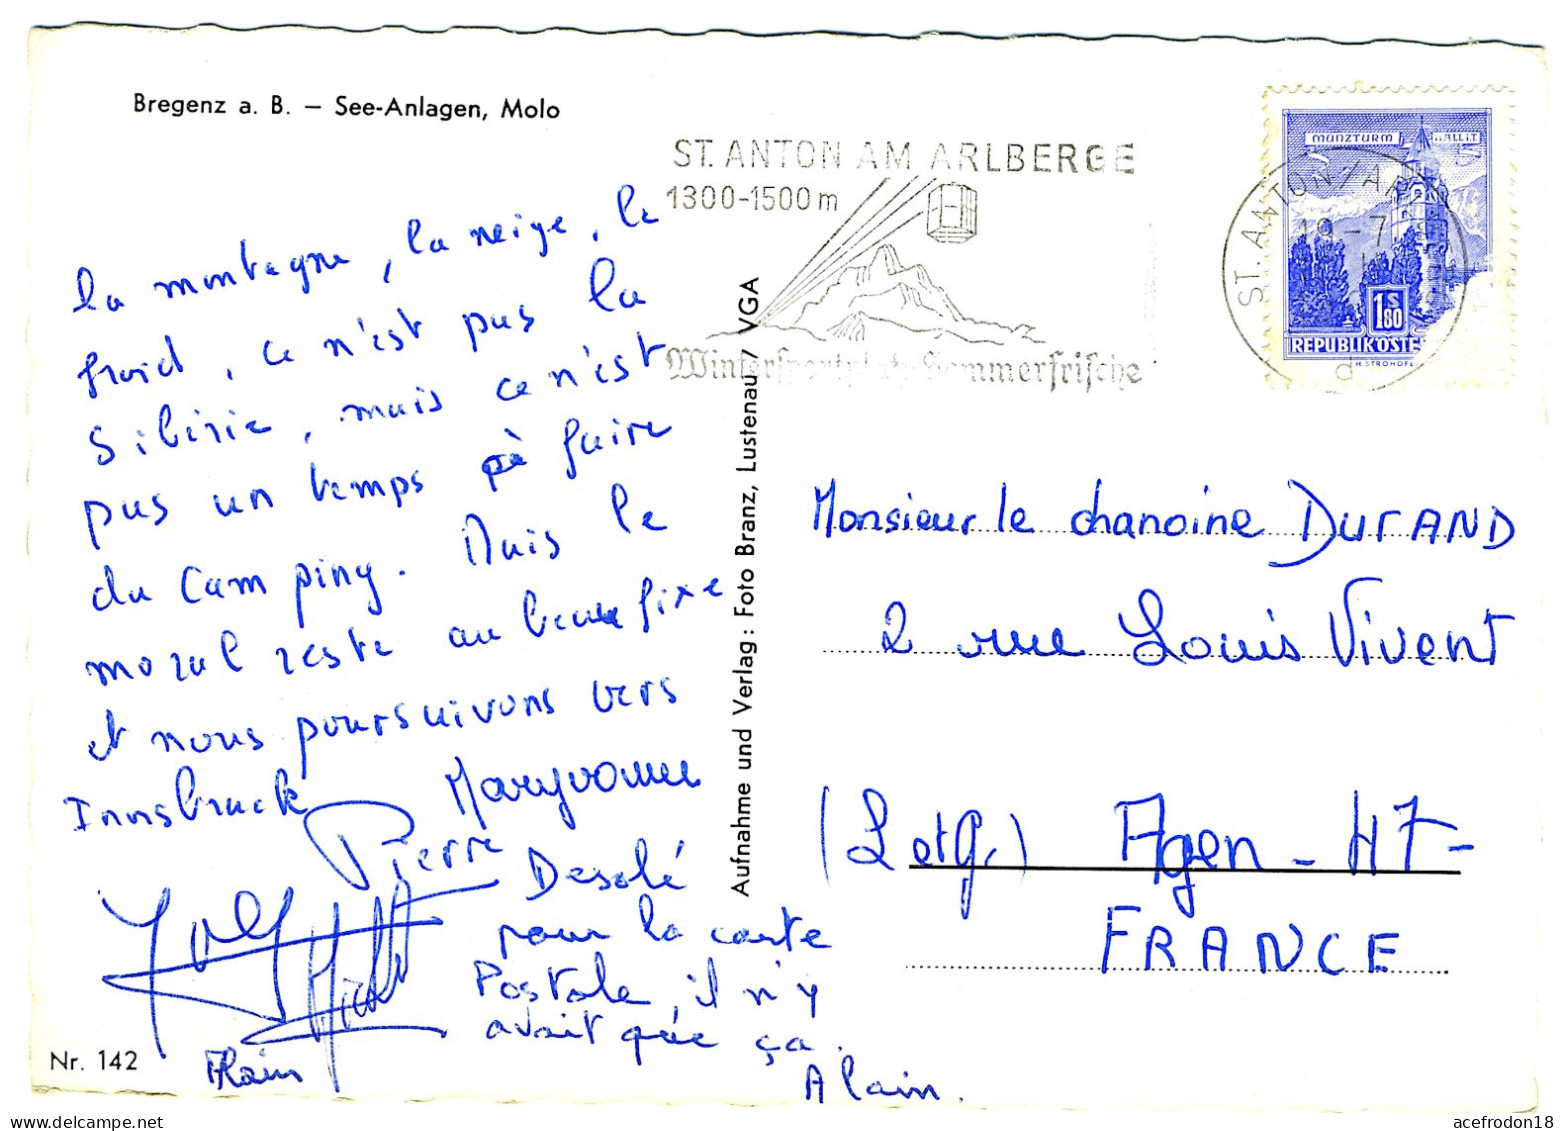 Bregenz a. B. – See-Anlagen, Molo
ST. ANTON AM ARLBERGE
1300-1500 m
Wintersportplatz Sommerfrische
MÜNZTURM HALL i.T.
ST. ANTON / AR
19 – 7
d
1 S 80
REPUBLIK ÖSTE
H. STROHOFE
la montagne, la neige, le
froid, ce n'est pas la
Sibérie, mais ce n'est
pas un temps à faire
du Camping. Mais le
moral reste au beau fixe
et nous poursuivons vers
Innsbruck
Maryvonne
Pierre
Alain
Desolé
pour la carte
Postale, il n'y
avait que ça.
Alain.
Nr. 142
Aufnahme und Verlag: Foto Branz, Lustenau / VGA
Monsieur le chanoine DURAND
2 rue Louis Vivent
(L et G.) Agen – 47 –
FRANCE
acefrodon18